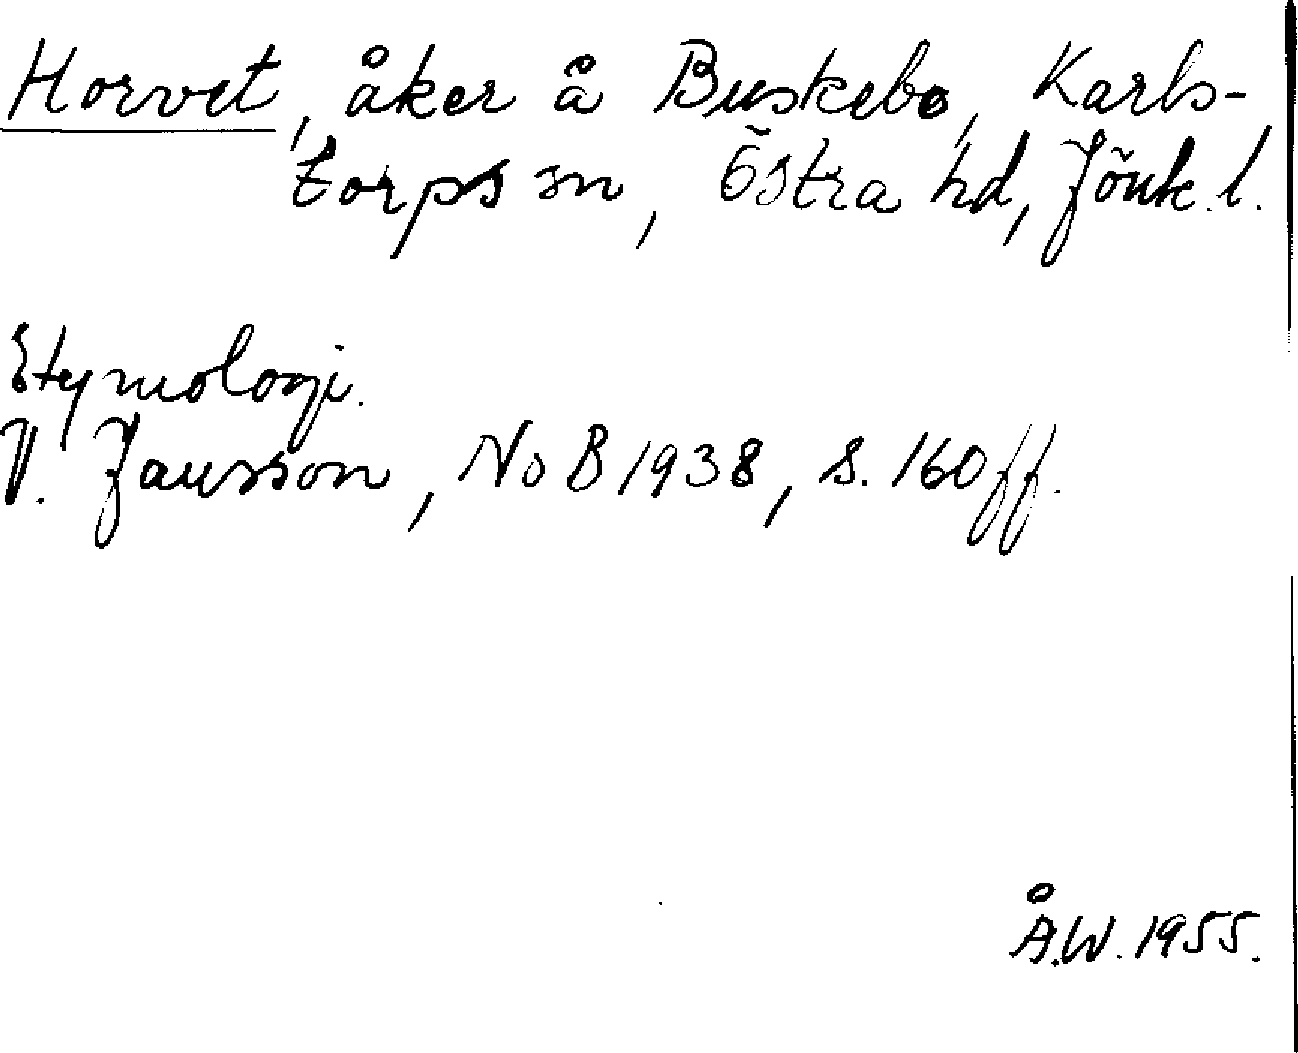 Horvet, åker å Buskebo, Karls-
torps sn, Östra hd, Jönk. l.
Etymologi.
V. Jansson, NoB 1938, s. 160 ff.
Å.W. 1955.